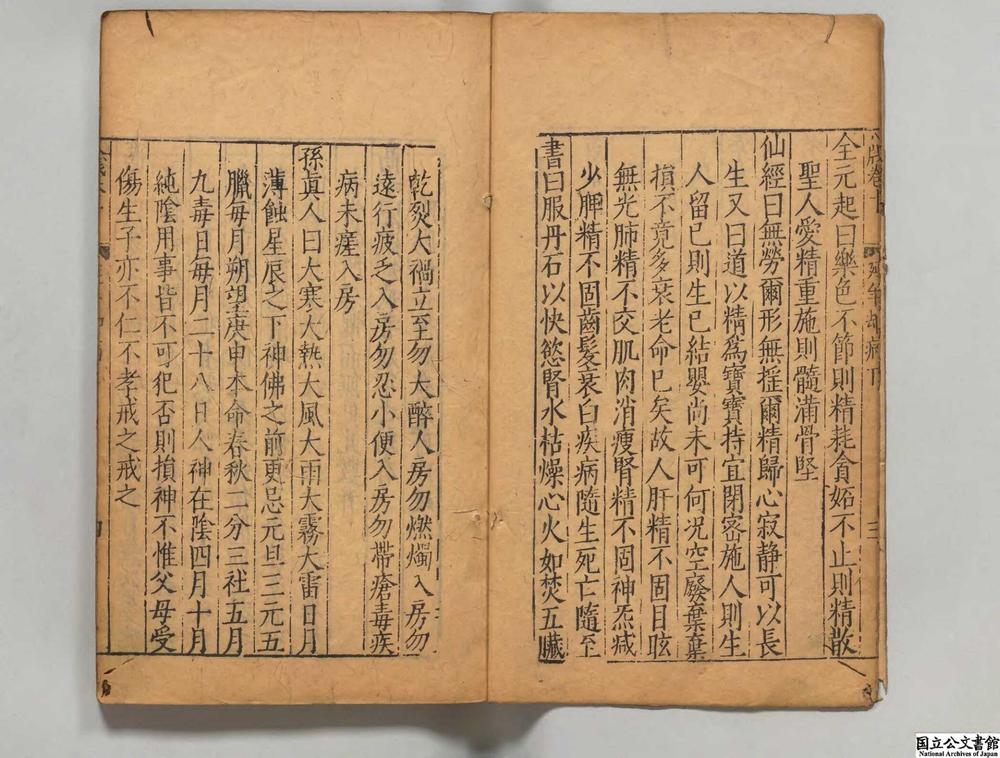 全元起曰樂色不節則精耗貪妬不止則精散
聖人愛精重施則髓滿骨堅
仙經曰無勞爾形無摇爾精歸心寂静可以長
生又曰道以精爲寶寶持宜閉宻施人則生
人留已則生已結嬰尚未可何況空廢棄棄
損不竟多衰老命已矣故人肝精不固目眩
無光肺精不交肌肉消瘦腎精不固神炁减
少脾精不固齒髮衰白疾病隨生死亡隨至
書曰服丹石以快慾腎水枯燥心火如焚五臟
乾烈大禍立至勿大醉入房勿燃燭入房勿
遠行疲乏入房勿忍小便入房勿帶瘡毒疾
病未痊入房
孫真人曰大寒大熱大風大雨大霧大雷日月
薄蝕星辰之下神佛之前更忌元旦三元五
臘每月朔望庚申本命春秋二分三社五月
九毒日每月二十八日人神在陰四月十月
純陰用事皆不可犯否則損神不惟父母受
傷生子亦不仁不孝戒之戒之
国立公文書館
National Archives of Japan